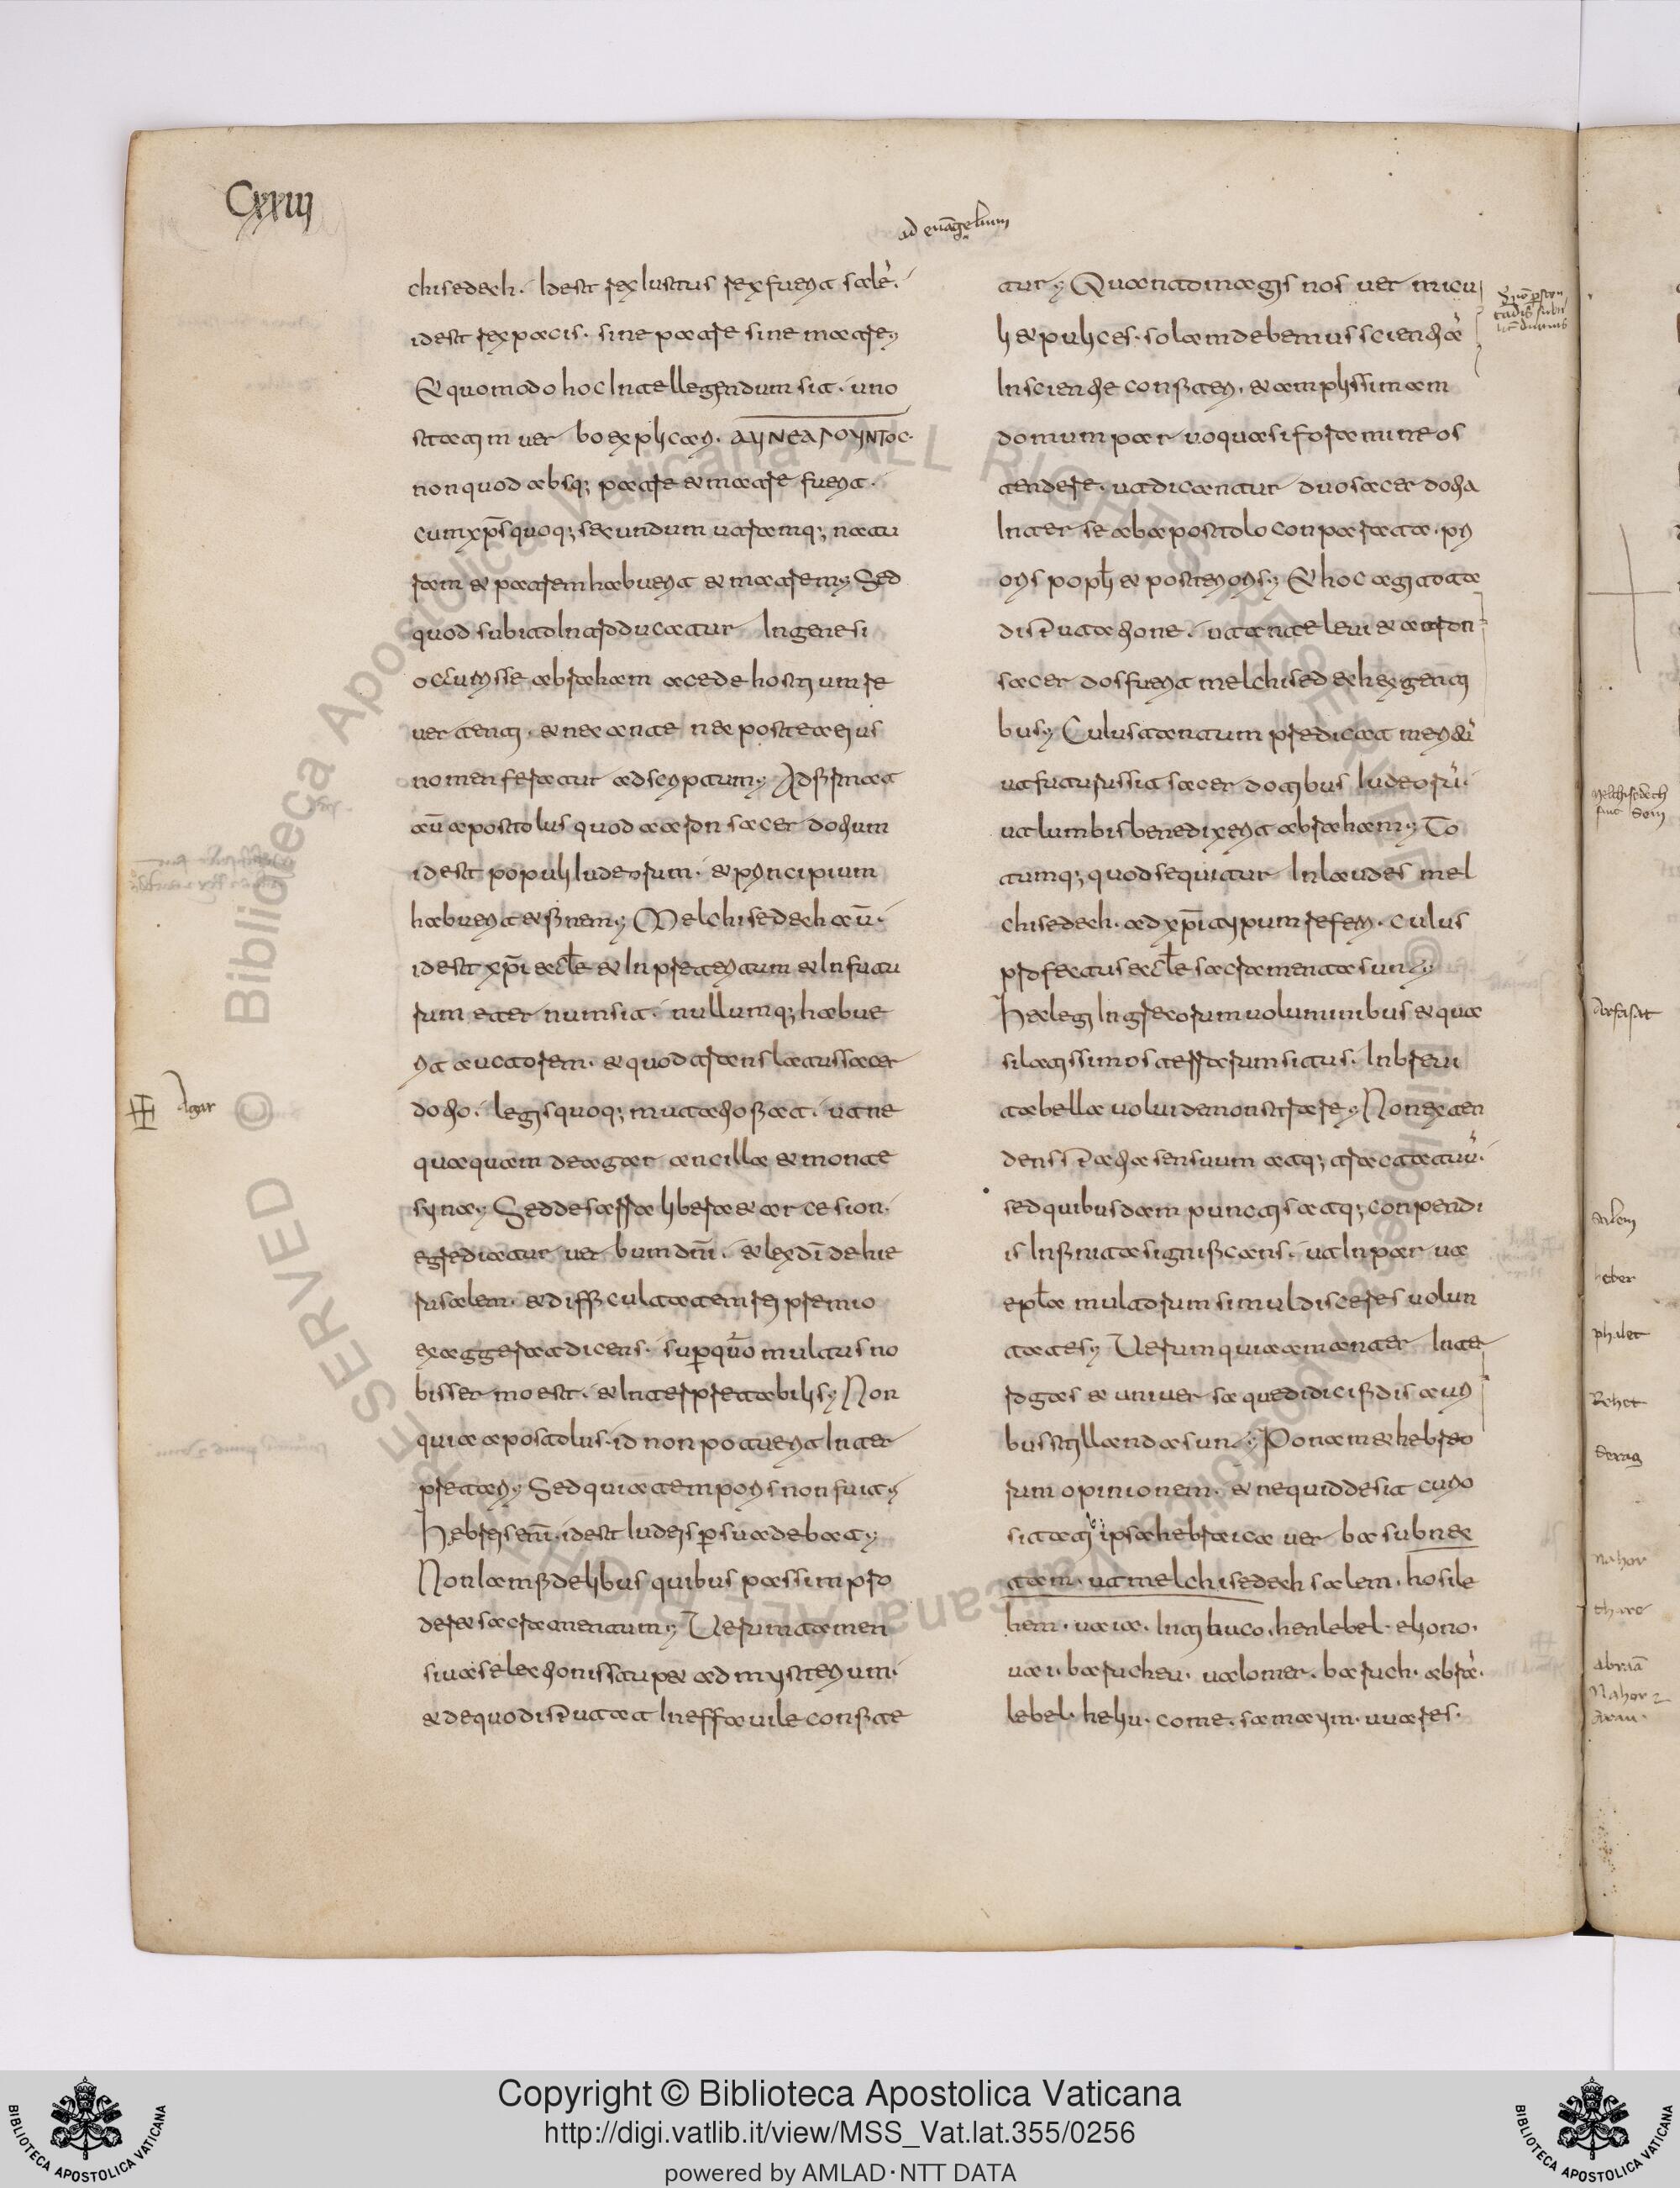 Cxxiij
ad euāgelium
chisedech. Idest rex Iustus rex fuerit salē.
idest rex pacis. sine patre sine matre;
Et quomodo hoc Intellegendum sit. uno
statim uerbo explicari. ΑΓΝΕΑΛΟΓΗΤΟC.
non quod absq; patre et matre fuerit.
cum xp̄s quoq; secundum utramq; natu
ram et patrem habuerit et matrem; Sed
quod subito Introducatur In genesi
occurrisse abraham a cede hostium re
uertenti. et nec ante nec postea eius
nomen feratur adscriptum; Adfirmat
aū apostolus quod aaron sacerdotium
idest populi Iudeorum. et principium
habuerit et finem; Melchisedech aū.
idest xp̄i eccl̄e et In preteritum et In futu
rum eternum sit. nullumq; habue
rit auctorem. et quod translatus sacer
dotio. legis quoq; mutatio fiat. ut ne
quaquam de agar ancilla et monte
syna; Sed de sarra libera et arce sion.
egrediatur uerbum dn̄i. et lex dī de hie
rusalem. et difficultatem rei premio
exaggerat dicens. super quo multus no
bis sermo est. et Interpretabilis; Non
quia apostolus id non potuerit Inter
pretari; Sed quia temporis non fuit;
Hebreis enī. idest Iudeis persuadebat;
Non Iam fidelibus quibus passim pro
deret sacramentum; Verum tamen
si uas electionis stupet ad mysterium.
et de quo disputat Ineffauile confite
Agar
tur; Quanto magis nos uermicu
li et pulices. solam debemus scientiā
Inscientie confiteri. et amplissimam
domum paruo quasi foramine os
tendere. ut dicantur duo sacerdotia
Inter se ab apostolo conparata. pri
oris popl̄i et posterioris; Et hoc agit tota
disputatione. ut ante leui et aaron
sacerdos fuerit melchisedech ex genti
bus; Cuius tantum predicat meritū
ut futurus sit sacerdotibus Iudeorū.
ut lumbis benedixerit abraham; To
tumq; quod sequitur In laudes mel
chisedech. ad xp̄i typum referri. cuius
profectus eccl̄e sacramenta sunt;
Hec legi In grecorum uoluminibus et qua
si latissimos terrarum situs. In breui
tabella uolui demonstrare; Non exten
dens spatia sensuum atq; tractatuū.
sed quibusdam punctis atq; conpendi
is Infinita significans. ut In parua
epl̄a multorum simul disceres uolun
tates; Verum quia amanter Inter
rogas et uniuersa que didici fidis auri
bus stillanda sunt; Ponam et hebreo
rum opinionem. et nequid desit curio
sitati ipsa hebraica uerba subnec
tam. ut melchisedech salem. hosile
hem. uaia. In ti huco. hen lebel. eliono.
uai. barucheu. uaiomer. baruch. abrā.
lebel. heliu. come. samaym. uuares.
Melchisedech
fuit Sem
Arfasat
Salem
heber
phalec
Nahor
thare
Abraā
Nahor
Aran.
Copyright © Biblioteca Apostolica Vaticana
http://digi.vatlib.it/view/MSS_Vat.lat.355/0256
powered by AMLAD·NTT DATA
BIBLIOTECA APOSTOLICA VATICANA
BIBLIOTECA APOSTOLICA VATICANA